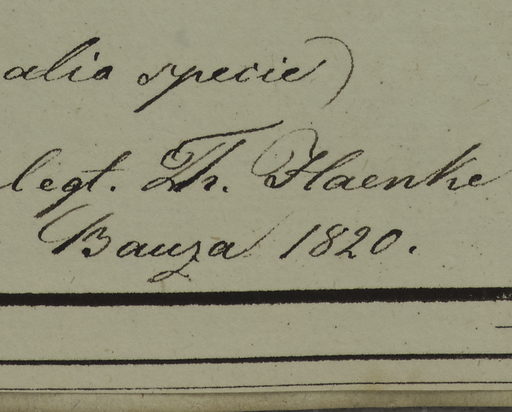 alia specie)
legt. Th. Haenke
Bauza 1820.